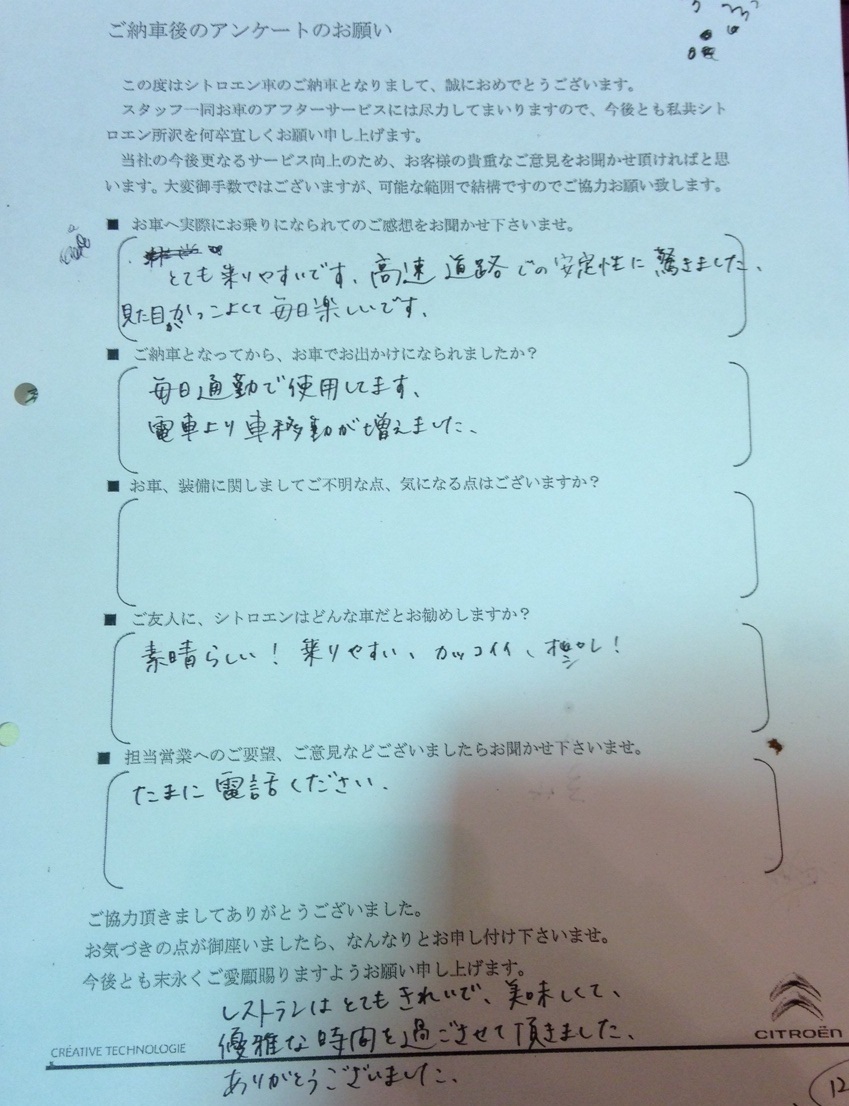 ご納車後のアンケートのお願い
この度はシトロエン車のご納車となりまして、誠におめでとうございます。
スタッフ一同お車のアフターサービスには尽力してまいりますので、今後とも私共シト
ロエン所沢を何卒宜しくお願い申し上げます。
当社の今後更なるサービス向上のため、お客様の貴重なご意見をお聞かせ頂ければと思
います。大変御手数ではございますが、可能な範囲で結構ですのでご協力お願い致します。
■ お車へ実際にお乗りになられてのご感想をお聞かせ下さいませ。
とても乗りやすいです。高速道路での安定性に驚きました。
見た目がかっこよくて毎日楽しいです。
■ ご納車となってから、お車でお出かけになられましたか？
毎日通勤で使用してます。
電車より車移動が増えました。
■ お車、装備に関しましてご不明な点、気になる点はございますか？
■ ご友人に、シトロエンはどんな車だとお勧めしますか？
素晴らしい！乗りやすい、カッコイイ、
■ 担当営業へのご要望、ご意見などございましたらお聞かせ下さいませ。
たまに電話ください。
ご協力頂きましてありがとうございました。
お気づきの点が御座いましたら、なんなりとお申し付け下さいませ。
今後とも末永くご愛顧賜りますようお願い申し上げます。
レストランはとてもきれいで、美味しくて、
優雅な時間を過ごさせて頂きました。
ありがとうございました。
CRÉATIVE TECHNOLOGIE
CITROËN
12